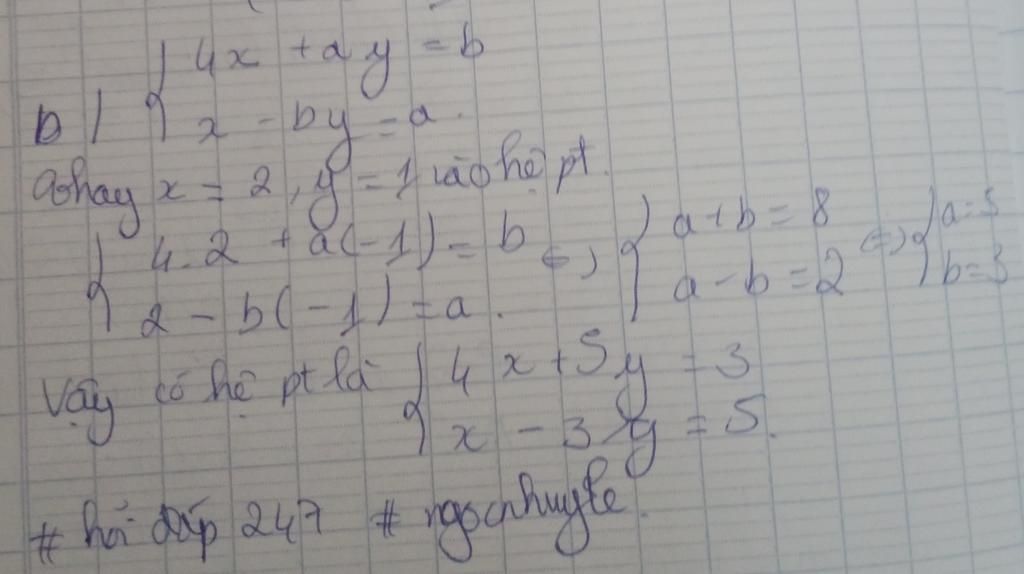 b) { 4x + ay = b
x - by = a.
Thay x = 2, y = 1 vào hệ pt.
{ 4.2 + a(-1) = b <=> { a + b = 8 <=> { a = 5
2 - b(-1) = a. a - b = 2 b = 3
Vậy có hệ pt là { 4x + 5y = 3
x - 3y = 5.
# hỏi đáp 247 # ngocnhuyle.